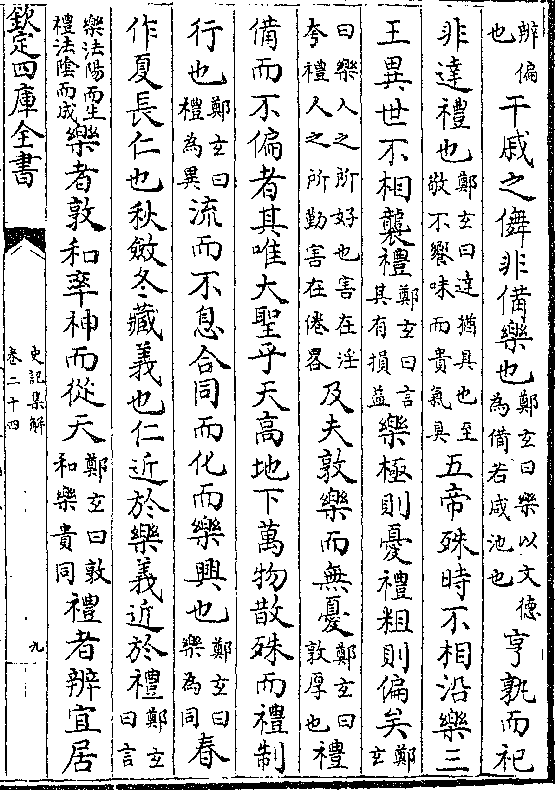 辨偏也干戚之儛非備樂也鄭玄曰樂以文德為備若咸池也亨孰而祀
非達禮也鄭玄曰達猶具也至敬不饗味而貴氣臭五帝殊時不相沿樂三
王異世不相襲禮鄭玄曰言其有損益樂極則憂禮粗則偏矣鄭玄
曰樂人之所好也害在淫夸禮人之所勤害在倦畧及夫敦樂而無憂鄭玄曰敦厚也禮
備而不偏者其唯大聖乎天高地下萬物散殊而禮制
行也鄭玄曰禮為異流而不息合同而化而樂興也鄭玄曰樂為同春
作夏長仁也秋斂冬藏義也仁近於樂義近於禮鄭玄曰言
樂法陽而生禮法陰而成樂者敦和率神而從天鄭玄曰敦和樂貴同禮者辨宜居
欽定四庫全書
史記集解
卷二十四
九